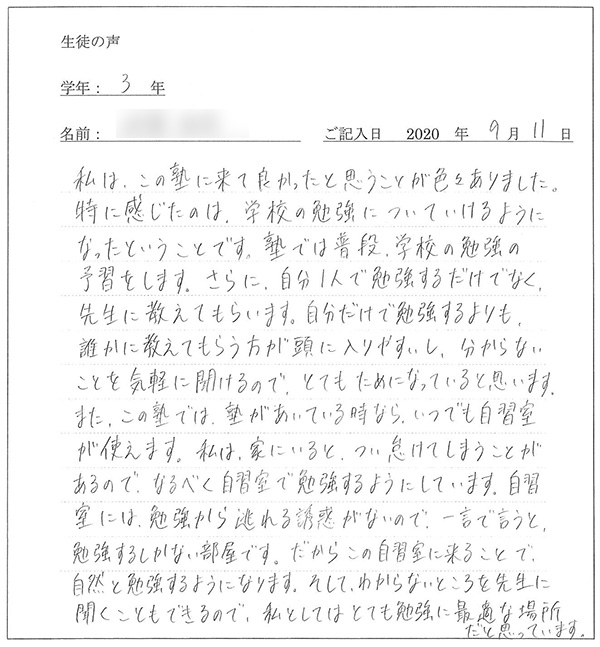 生徒の声
学年： 3 年
名前： ご記入日 2020 年 9 月 11 日
私は、この塾に来て良かったと思うことが色々ありました。
特に感じたのは、学校の勉強についていけるように
なったということです。塾では普段、学校の勉強の
予習をします。さらに、自分1人で勉強するだけでなく、
先生に教えてもらいます。自分だけで勉強するよりも、
誰かに教えてもらう方が頭に入りやすいし、分からない
ことを気軽に聞けるので、とてもためになっていると思います。
また、この塾では、塾があいている時なら、いつでも自習室
が使えます。私は、家にいると、つい怠けてしまうことが
あるので、なるべく自習室で勉強するようにしています。自習
室には、勉強から逃れる誘惑がないので、一言で言うと、
勉強するしかない部屋です。だからこの自習室に来ることで、
自然と勉強するようになります。そして、わからないところを先生に
聞くこともできるので、私としてはとても勉強に最適な場所
だと思っています。